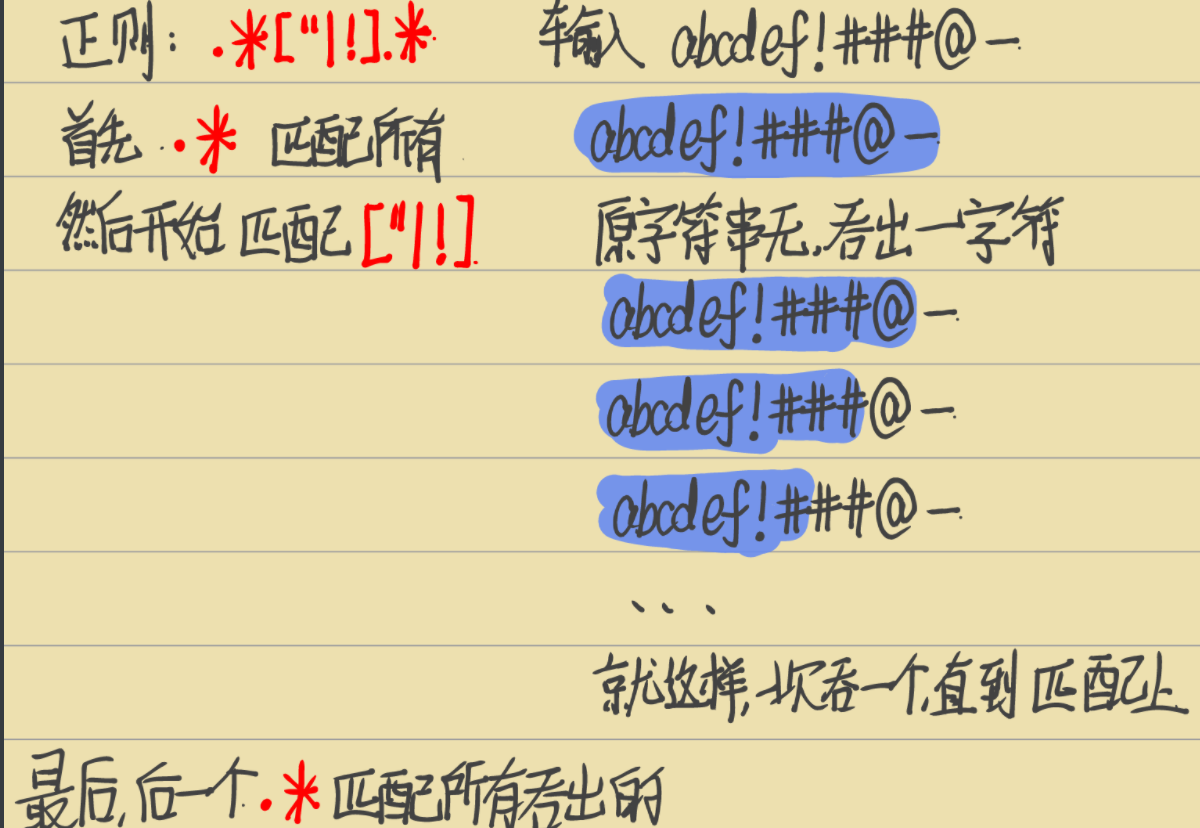 正则: .*["|!].* 输入 abcdef!###@-
首先 .* 匹配所有 abcdef!###@-
然后开始 匹配 ["|!] 原字符串无,吞出一字符
abcdef!###@-
abcdef!###@-
abcdef!###@-
...
就这样,一次吞一个,直到 匹配上
最后,后一个 .* 匹配所有吞出的